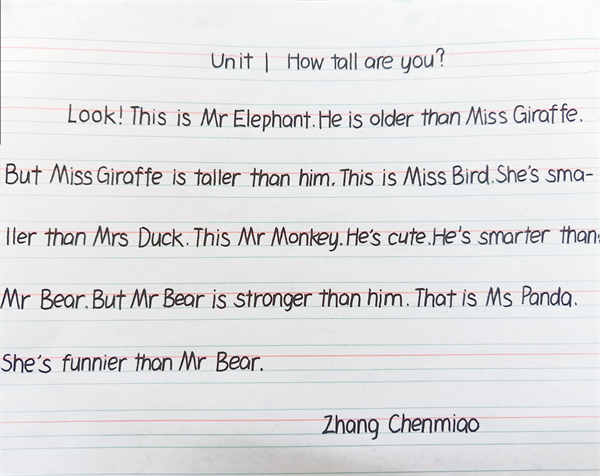 Unit 1 How tall are you?
Look! This is Mr Elephant. He is older than Miss Giraffe.
But Miss Giraffe is taller than him. This is Miss Bird. She's sma-
ller than Mrs Duck. This Mr Monkey. He's cute. He's smarter than
Mr Bear. But Mr Bear is stronger than him. That is Ms Panda.
She's funnier than Mr Bear.
Zhang Chenmiao